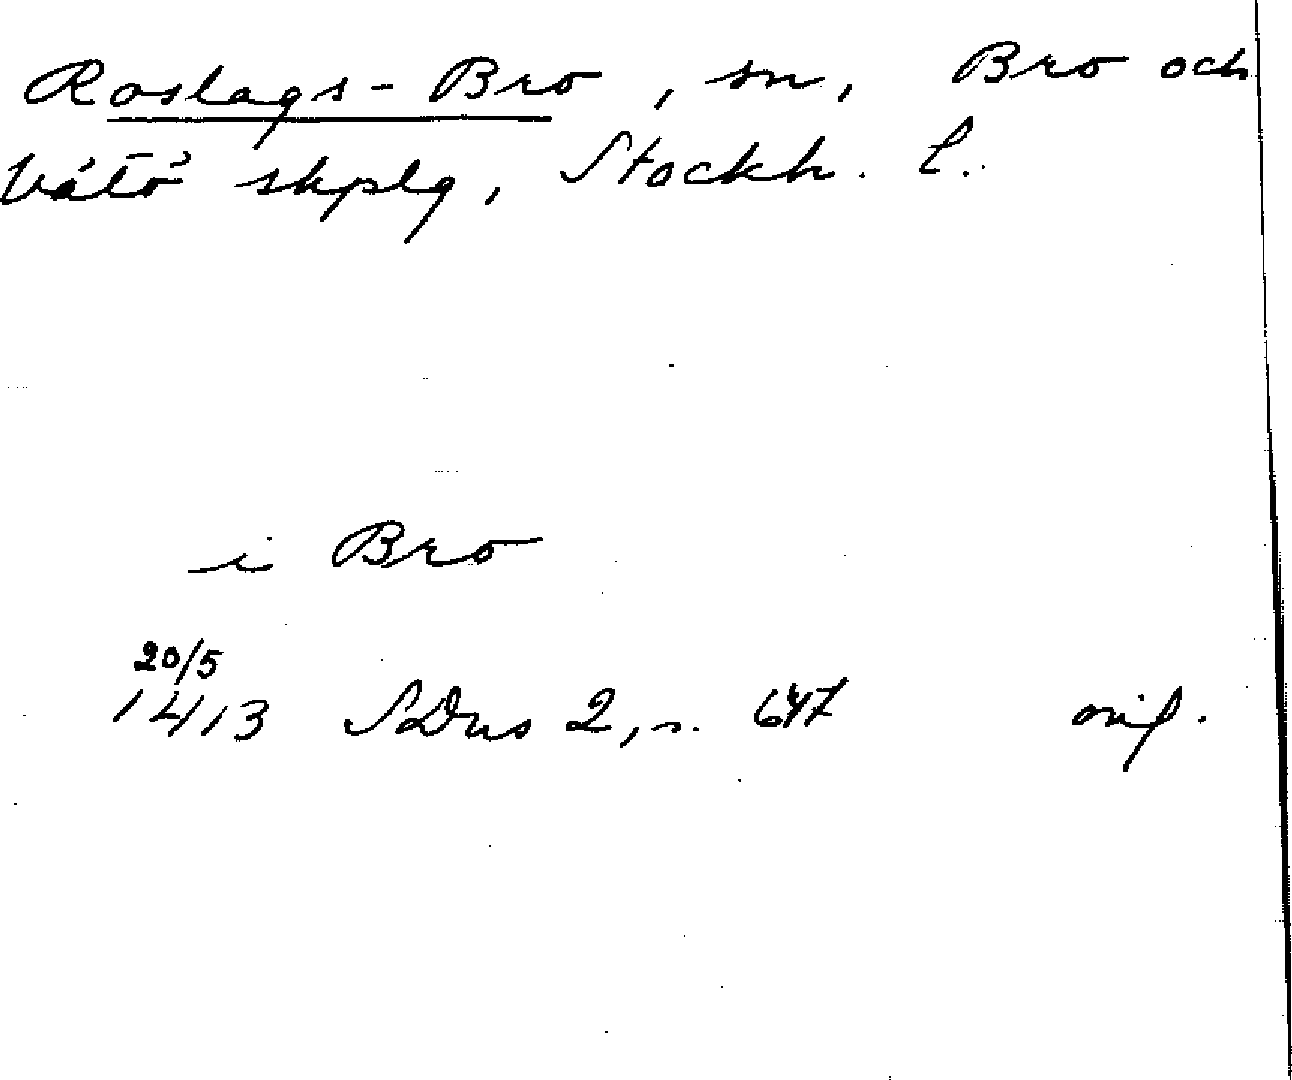 Roslags-Bro, sn, Bro och
Vätö skplg, Stockh. l.
i Bro
20/5
1413 SDns 2, s. 647 orig.